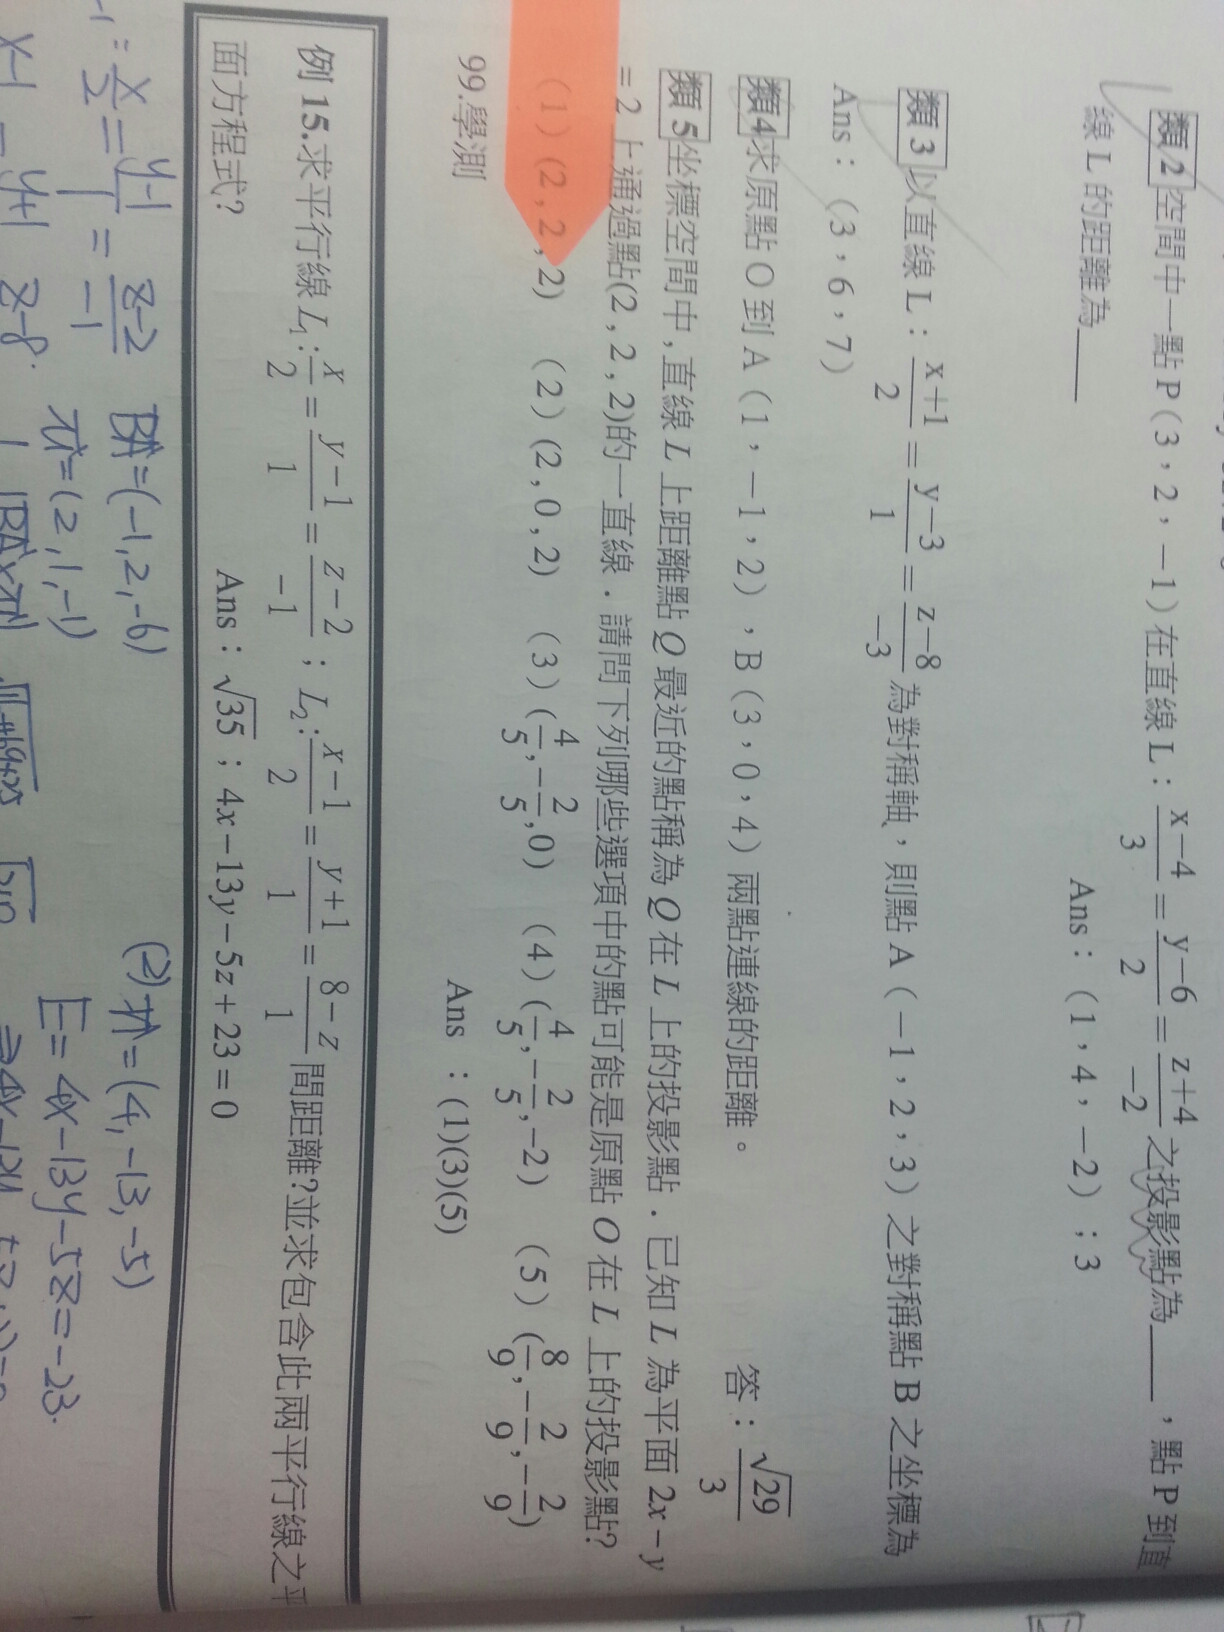 類2 空間中一點 P(3，2，－1)在直線 L：x−4/3＝y−6/2＝z+4/−2 之投影點為____，點 P 到直
線 L 的距離為____
Ans：(1，4，－2)；3
類3 以直線 L：x+1/2＝y−3/1＝z−8/−3 為對稱軸，則點 A(－1，2，3)之對稱點 B 之坐標為
Ans：(3，6，7)
類4 求原點 O 到 A(1，－1，2)，B(3，0，4)兩點連線的距離。
答：√29/3
類5 坐標空間中，直線 L 上距離點 Q 最近的點稱為 Q 在 L 上的投影點．已知 L 為平面 2x－y
＝2 上通過點(2，2，2)的一直線．請問下列哪些選項中的點可能是原點 O 在 L 上的投影點?
(1)(2，2，2) (2)(2，0，2) (3)(4/5,−2/5,0) (4)(4/5,−2/5,−2) (5)(8/9,−2/9,−2/9)
99.學測
Ans：(1)(3)(5)
例 15.求平行線 L₁:x/2=y−1/1=z−2/−1；L₂:x−1/2=y+1/1=8−z/1 間距離?並求包含此兩平行線之平
面方程式?
Ans：√35；4x−13y−5z+23=0
: x/2 = y−1/1 = z−2/−1
BA=(−1,2,−6)
(2) n=(4,−13,−5)
n=(2,1,−1)
E=4x−13y−5z=−23.
x−1 y+1 z−8